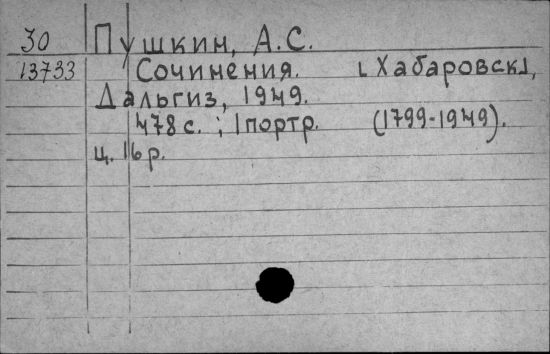 30 Пушкин, А.С.
13733 Сочинения. [Хабаровск],
Дальгиз, 1949.
478 с. ; 1 портр. (1799-1949).
ц. 16 р.